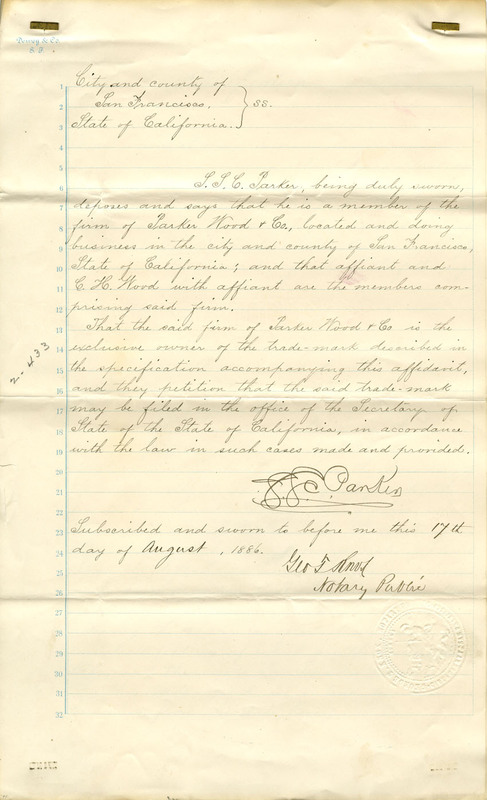 Dewey & Co.
S. F.
City and county of
San Francisco, } ss.
State of California.
S. S. C. Parker, being duly sworn,
deposes and says that he is a member of the
firm of Parker Wood & Co., located and doing
business in the city and county of San Francisco,
State of California; and that affiant and
C. H. Wood with affiant are the members com-
prising said firm.
That the said firm of Parker Wood & Co is the
exclusive owner of the trade-mark described in
the specification accompanying this affidavit,
and they petition that the said trade-mark
may be filed in the office of the Secretary of
State of the State of California, in accordance
with the law in such cases made and provided.
Parker
Subscribed and sworn to before me this 17th
day of August, 1886.
Geo T Knox
Notary Public
2-433
1
2
3
4
5
6
7
8
9
10
11
12
13
14
15
16
17
18
19
20
21
22
23
24
25
26
27
28
29
30
31
32